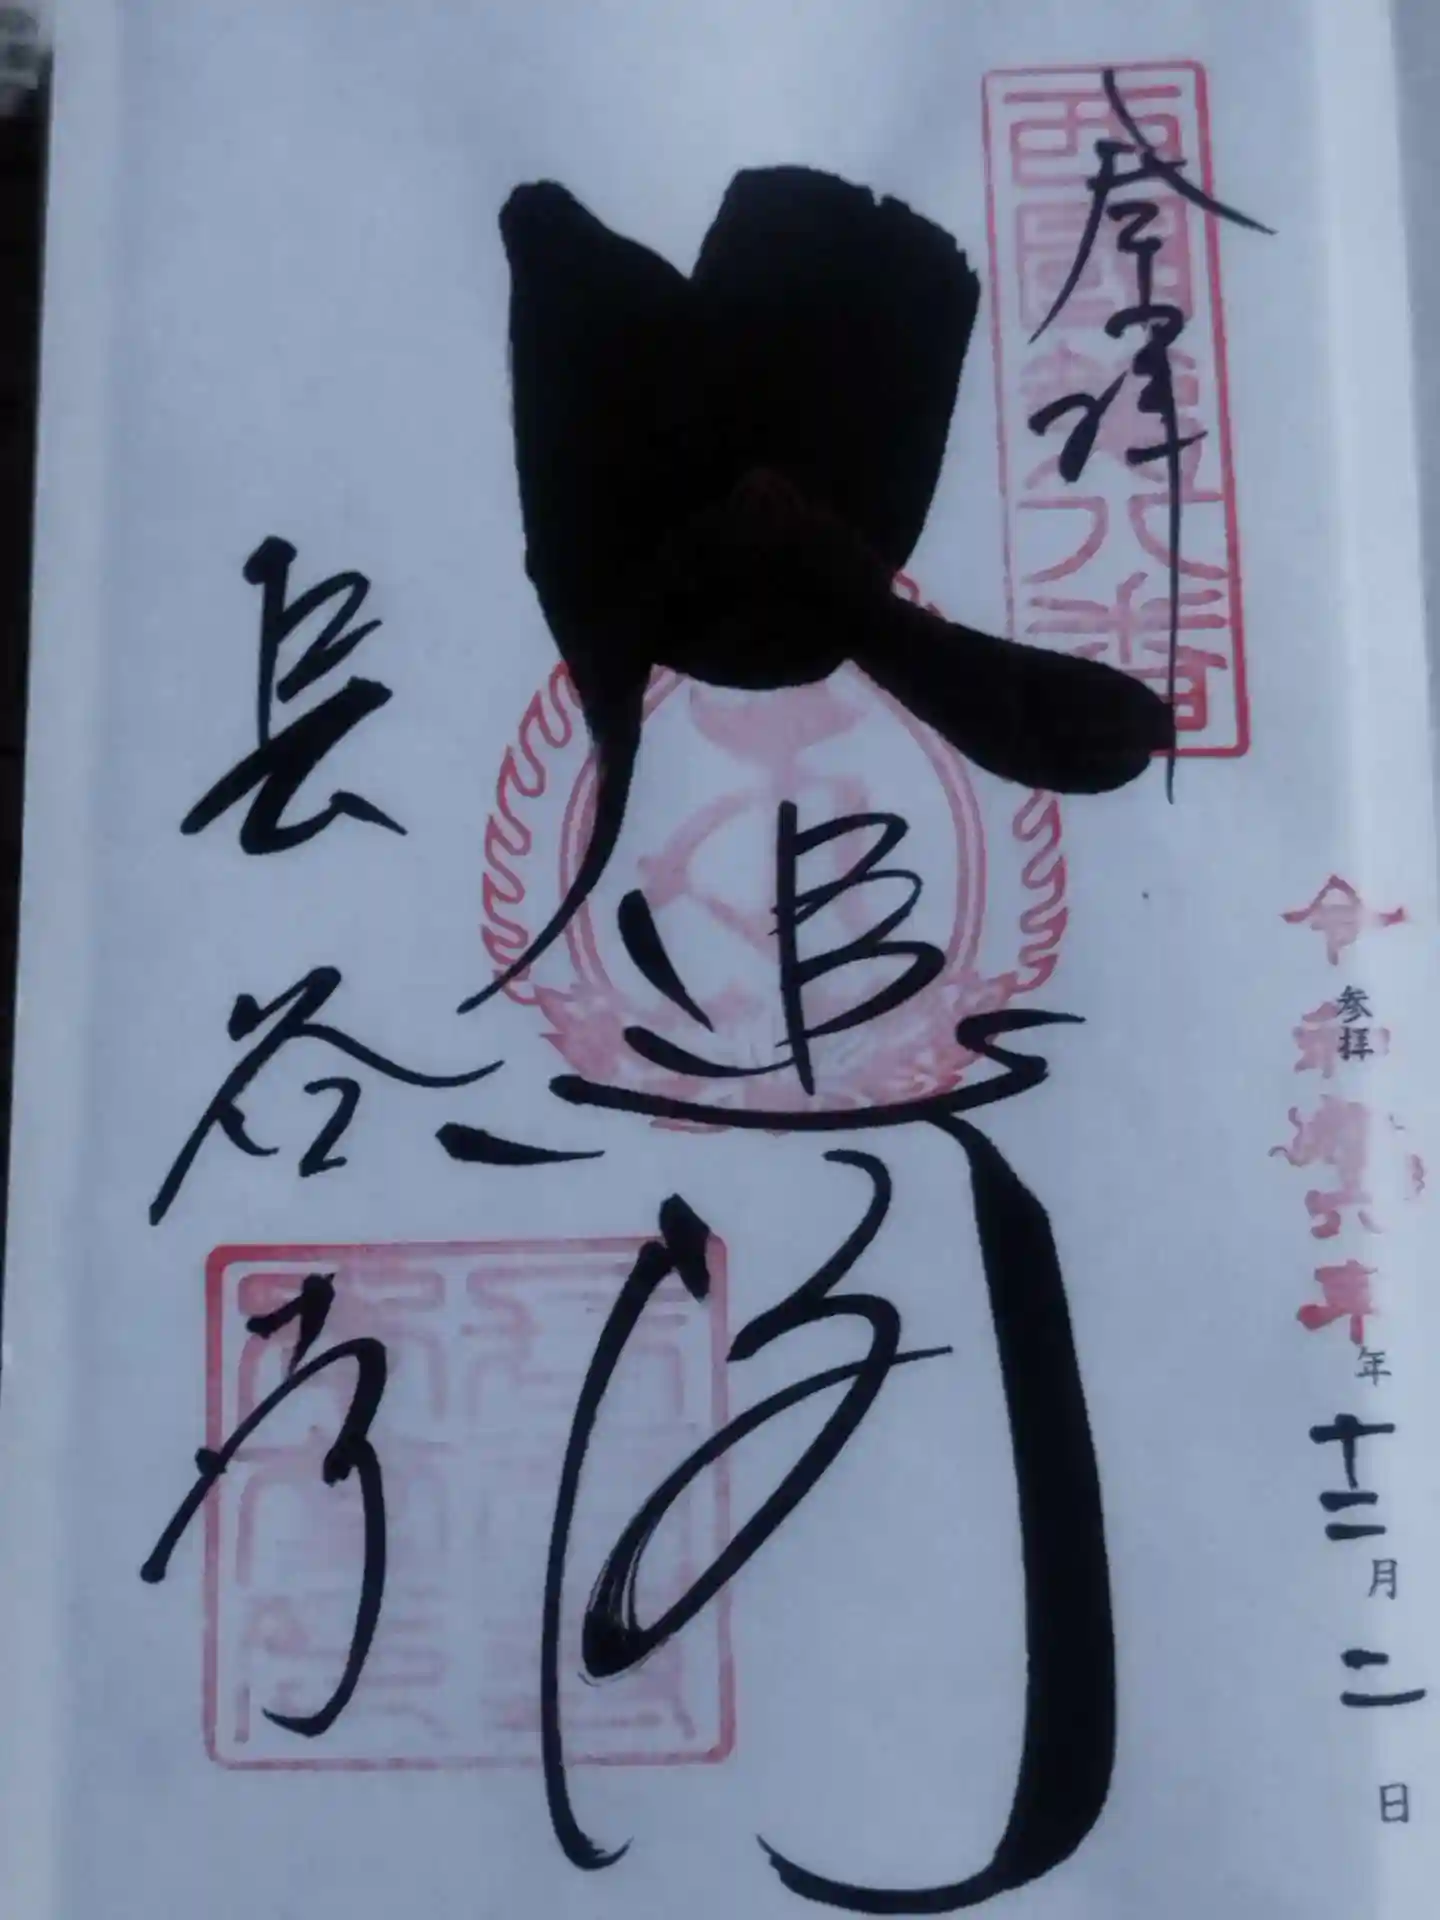 奉拝
西國第八番
大悲閣
長谷寺
令和六年
参拝 年 十二月二日